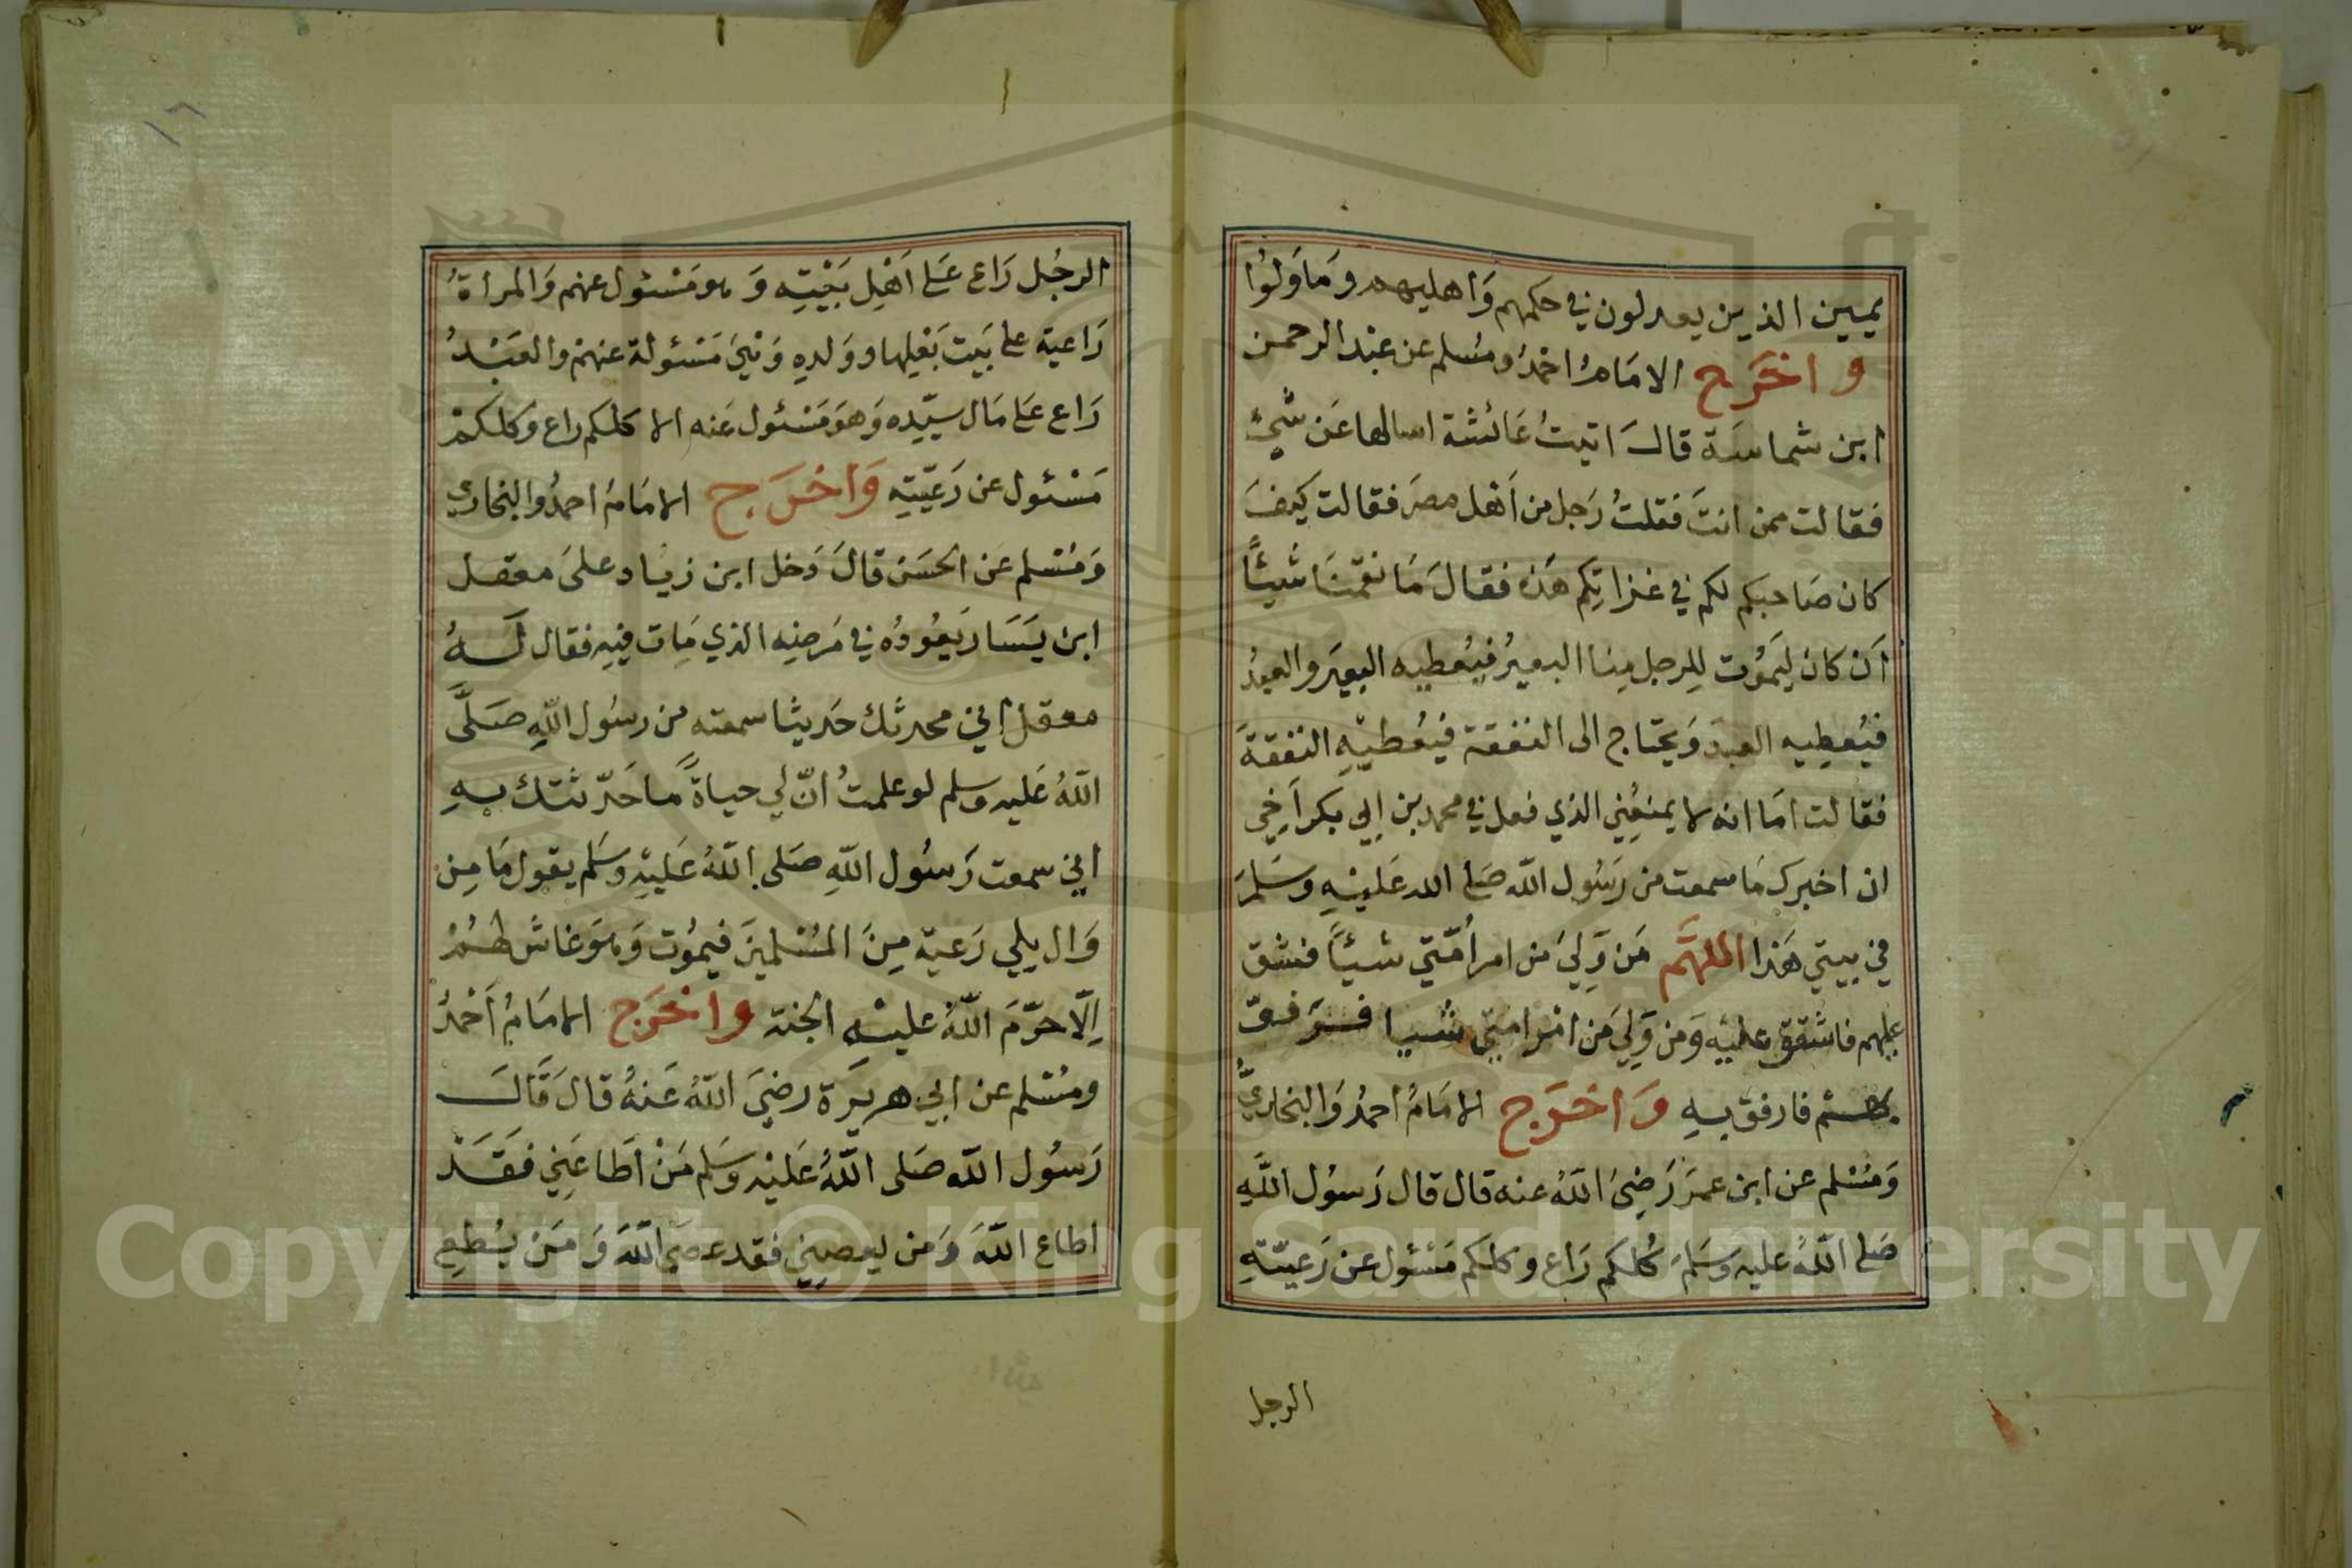 يمين الذين يعدلون في حكمهم وَاهليهم ومَا وَلوُا
و اخرَج الامَامُ احمدُ ومسُلم عن عبْد الرحمن
ابن شماسَة قالَ اتيتُ عَائشة اسالها عَن شيْءٍ
فقالت ممن انتَ فقلتُ رَجل من اَهْل مصرَ فقالت كيفَ
كان صَاحبكم لكم في غزاتِكم هَذه فقالَ مَا نقمْنَا شيئًا
اَن كان ليَموُت لِلرجل مِنا البعيرُ فيُعطِيه البعيَر والعبدُ
فيُعطِيه العبدَ وَيحتاج الى النفقة فيُعْطيْهِ النفقةَ
فقالت امَا انه لا يمنعُني الذي فعل في محمد بن ابي بكر اَخِي
ان اخبرك مَا سمعت من رَسُول اللّه صَلى الله عَليْهِ وسَلمَ
في بيتي هَذا اللهَّم مَن وَلِيَ من امر اُمّتي شيئًا فشق
عليهم فاشقق عليْه وَمن وَلِيَ مَن امْر امتي شيا فرَفقَ
بهم فارفق بهِ وَاخرَج الامَامُ احمدُ وَالبخاريُّ
وَمسُلم عن ابن عمرَ رَضِيَ اللّهُ عنه قال قال رَسوُل اللّهِ
صَلى اللّهُ عليه وسَلمَ كُلكم رَاع وكلكم مَسْئول عن رَعيّتهِ
الرجل
١٦
الرجُل رَاع عَلى اَهْلِ بَيْتِه وَهو مَسْئول عنهم وَالمراةُ
رَاعية على بَيت بَعْلِها ووَلدهِ وَهيَ مَسْئولة عنهمْ والعَبْدُ
رَاع عَلى مَال سيّدِه وَهوَ مَسْئول عَنه الا كلكم راع وكلكمْ
مَسْئول عن رَعَيّتِهِ وَاخرَج الامَامُ احمدُ والبخاري
وَمسُلم عَن الحسَن قالَ دَخل ابن زيَاد علىَ معقل
ابن يَسَار يَعُودُه في مَرضِه الذي مَات فيهِ فقال لَهُ
معقل اني محدثك حَديثا سمعته من رسُول اللّهِ صَلىَّ
اللّهُ عَليه وسلم لو علمتُ انّ لي حياةً مَا حَدّثتك بهِ
اني سمعت رَسوُل اللّهِ صَلى اللّهُ عَليْهِ وسَلم يقول مَا مِن
وَال يلي رَعية مِنَ المسُلمينَ فيموُت وَهوَ غاش لهُمْ
اِلّا حرّمَ اللّهُ عليْهِ الجنة واخرَج الامَامُ اَحمدُ
ومسُلم عن ابي هريرَة رضيَ اللّهُ عَنهُ قالَ قَالَ
رَسوُل اللّه صَلى اللّهُ عَليْه وَسَلم مَنْ اَطاعَني فقَدْ
اطاع اللّهَ وَمن يعصِني فقد عصَى اللّهَ وَمَن يُطِع
Copyright © King Saud University